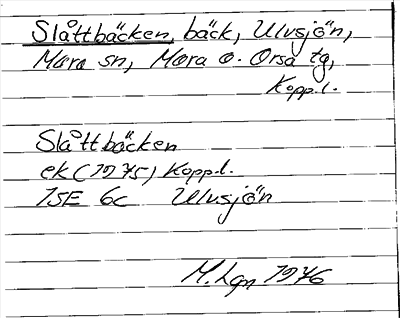 Slåttbäcken, bäck, Ulvsjön,
Mora sn, Mora o. Orsa tg,
Kopp.l.
Slåttbäcken
ek (1975) Kopp.l.
15E 6c Ulvsjön
M.Lgn 1976